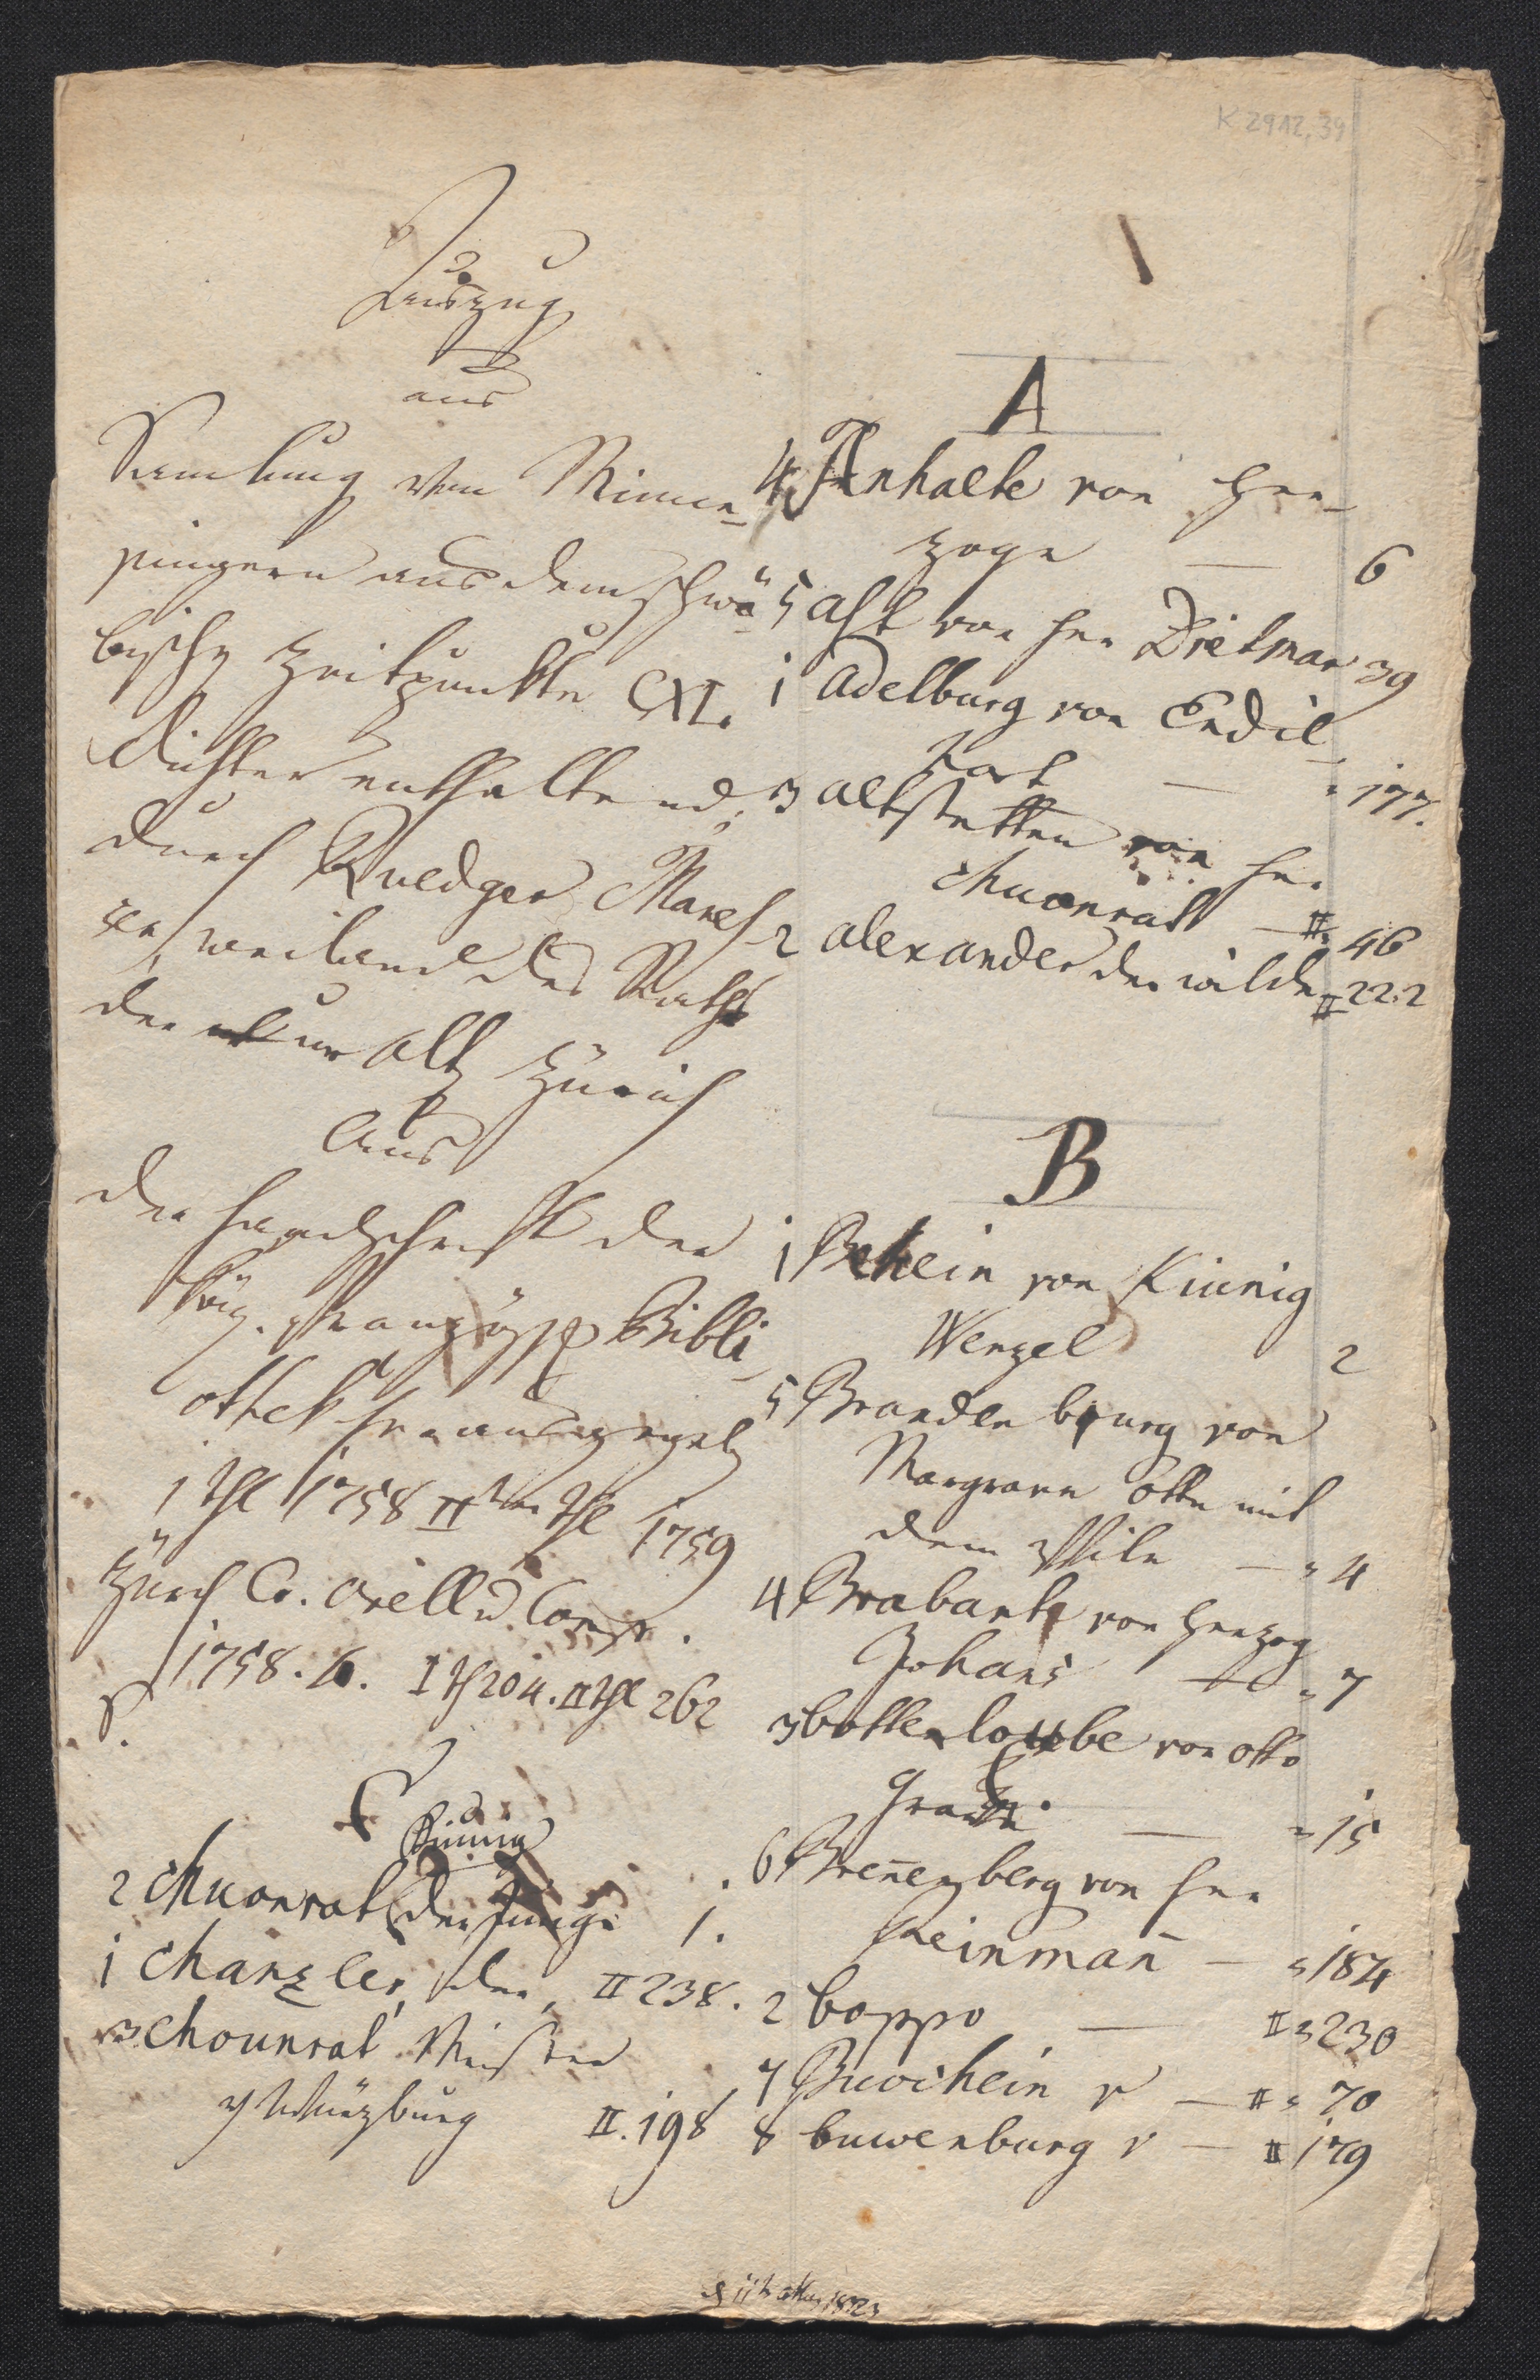 K 2912,39
Auszug
aus
Samlung von Minne-
singern aus dem schwä-
bischen Zeitpunkte CXL.
Dichter enthaltend;
durch Ruedger Manes-
sen, weiland des Raths
der uralten Zürich
Aus
der Handschrift der
König. Französischen Bibli-
othek herausgegeben
I Thl 1758 II Thl 1759
Zürich C. Orell u Comp.
1758. I Th 204. II Thl 262
S.
C
Künig
2 Chuonrat der Junge 1.
1 Chanzler, der, II 238.
3 Chounrat Meister
v Würzburg II. 198
A
4 Anhalte von Her-
zoge — 6
5 Ast von her Dietmar 39
1 Adelburg von Endil-
hart — " 177.
3 altstetten von her
Chuonrat — II. 46
2 alexander der wilde II 222
B
1 Behein von Künig
Wenzel 2
5 Brandenburg von
Margrave Otte mit
dem Phile — " 4
4 Brabant von Herzog
Johans — " 7
3 bottenloube von otto
Grave — " 15
6 Brennenberg von her
Reinman — " 184
2 boppo — II " 230
7 Buochein v — II " 70
8 buwenburg v — II 179